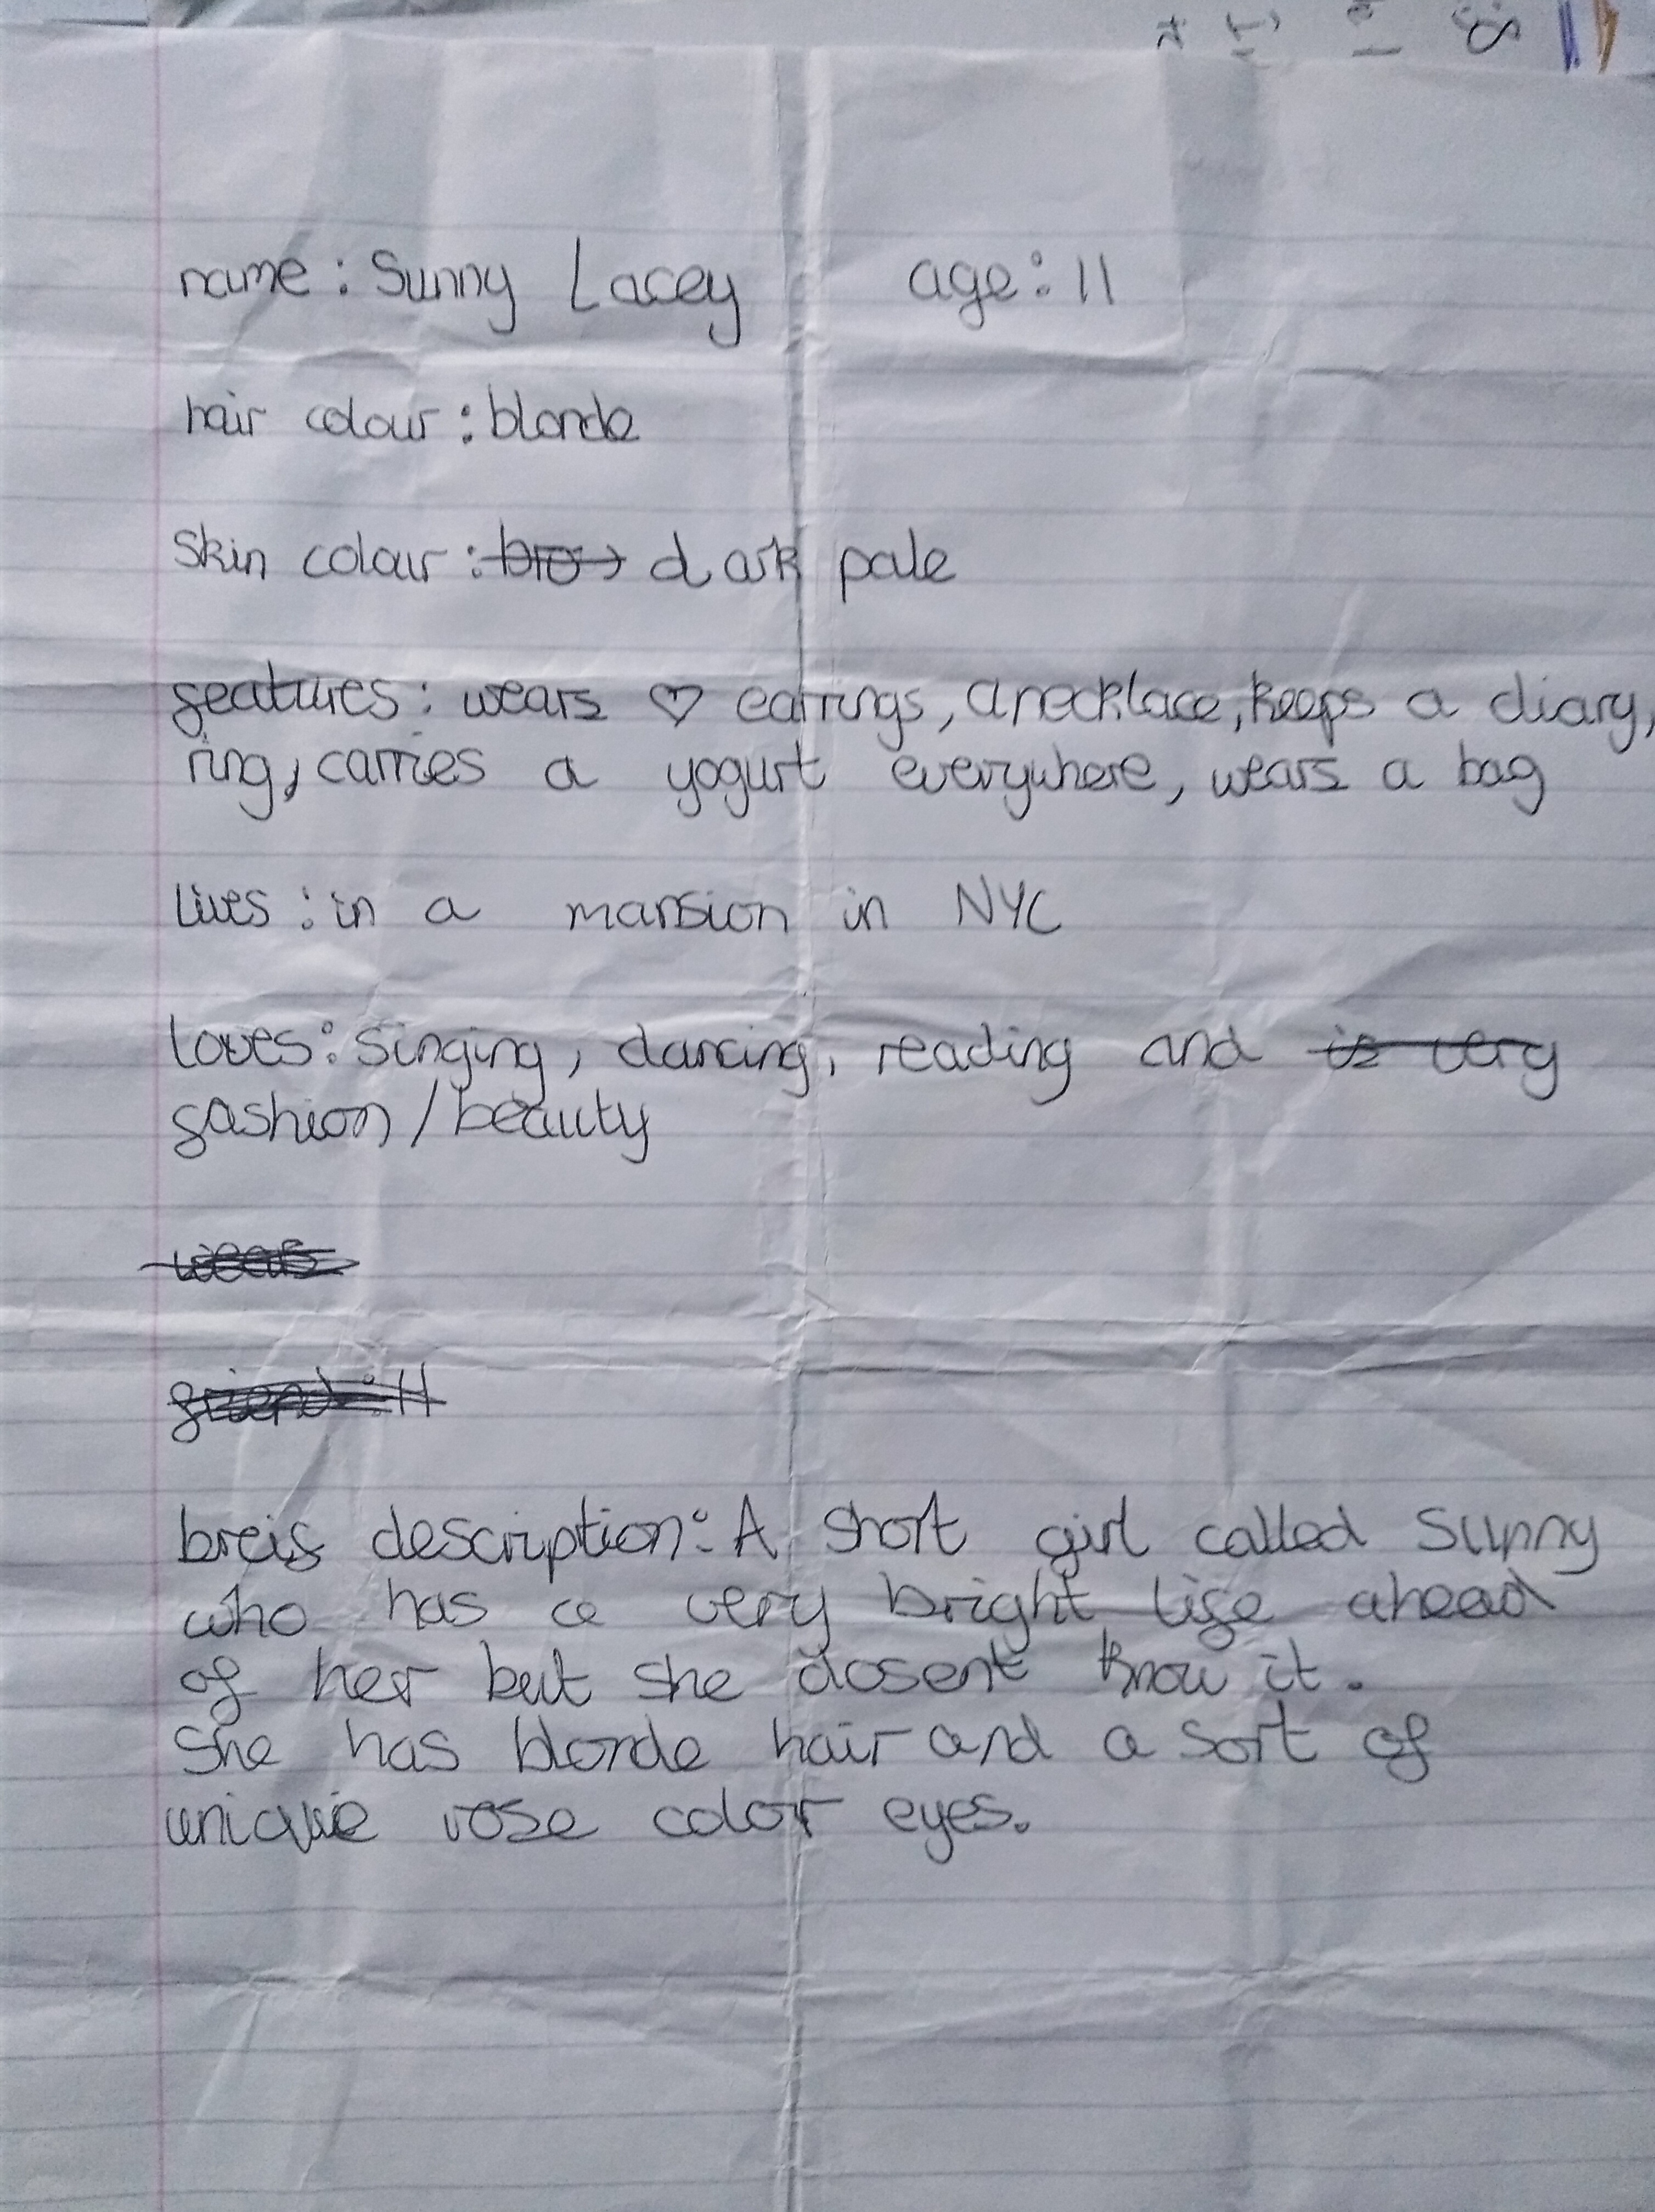 name : Sunny Lacey age : 11
hair colour : blonde
Skin colour : bro dark pale
features : wears ♡ earrings, a necklace, keeps a diary,
ring, carries a yogurt everywhere, wears a bag
Lives : in a mansion in NYC
loves : singing, dancing, reading and is very
fashion / beauty
wears
friend : 11
breif description : A short girl called Sunny
who has a very bright life ahead
of her but she dosent know it.
She has blonde hair and a sort of
unique rose color eyes.